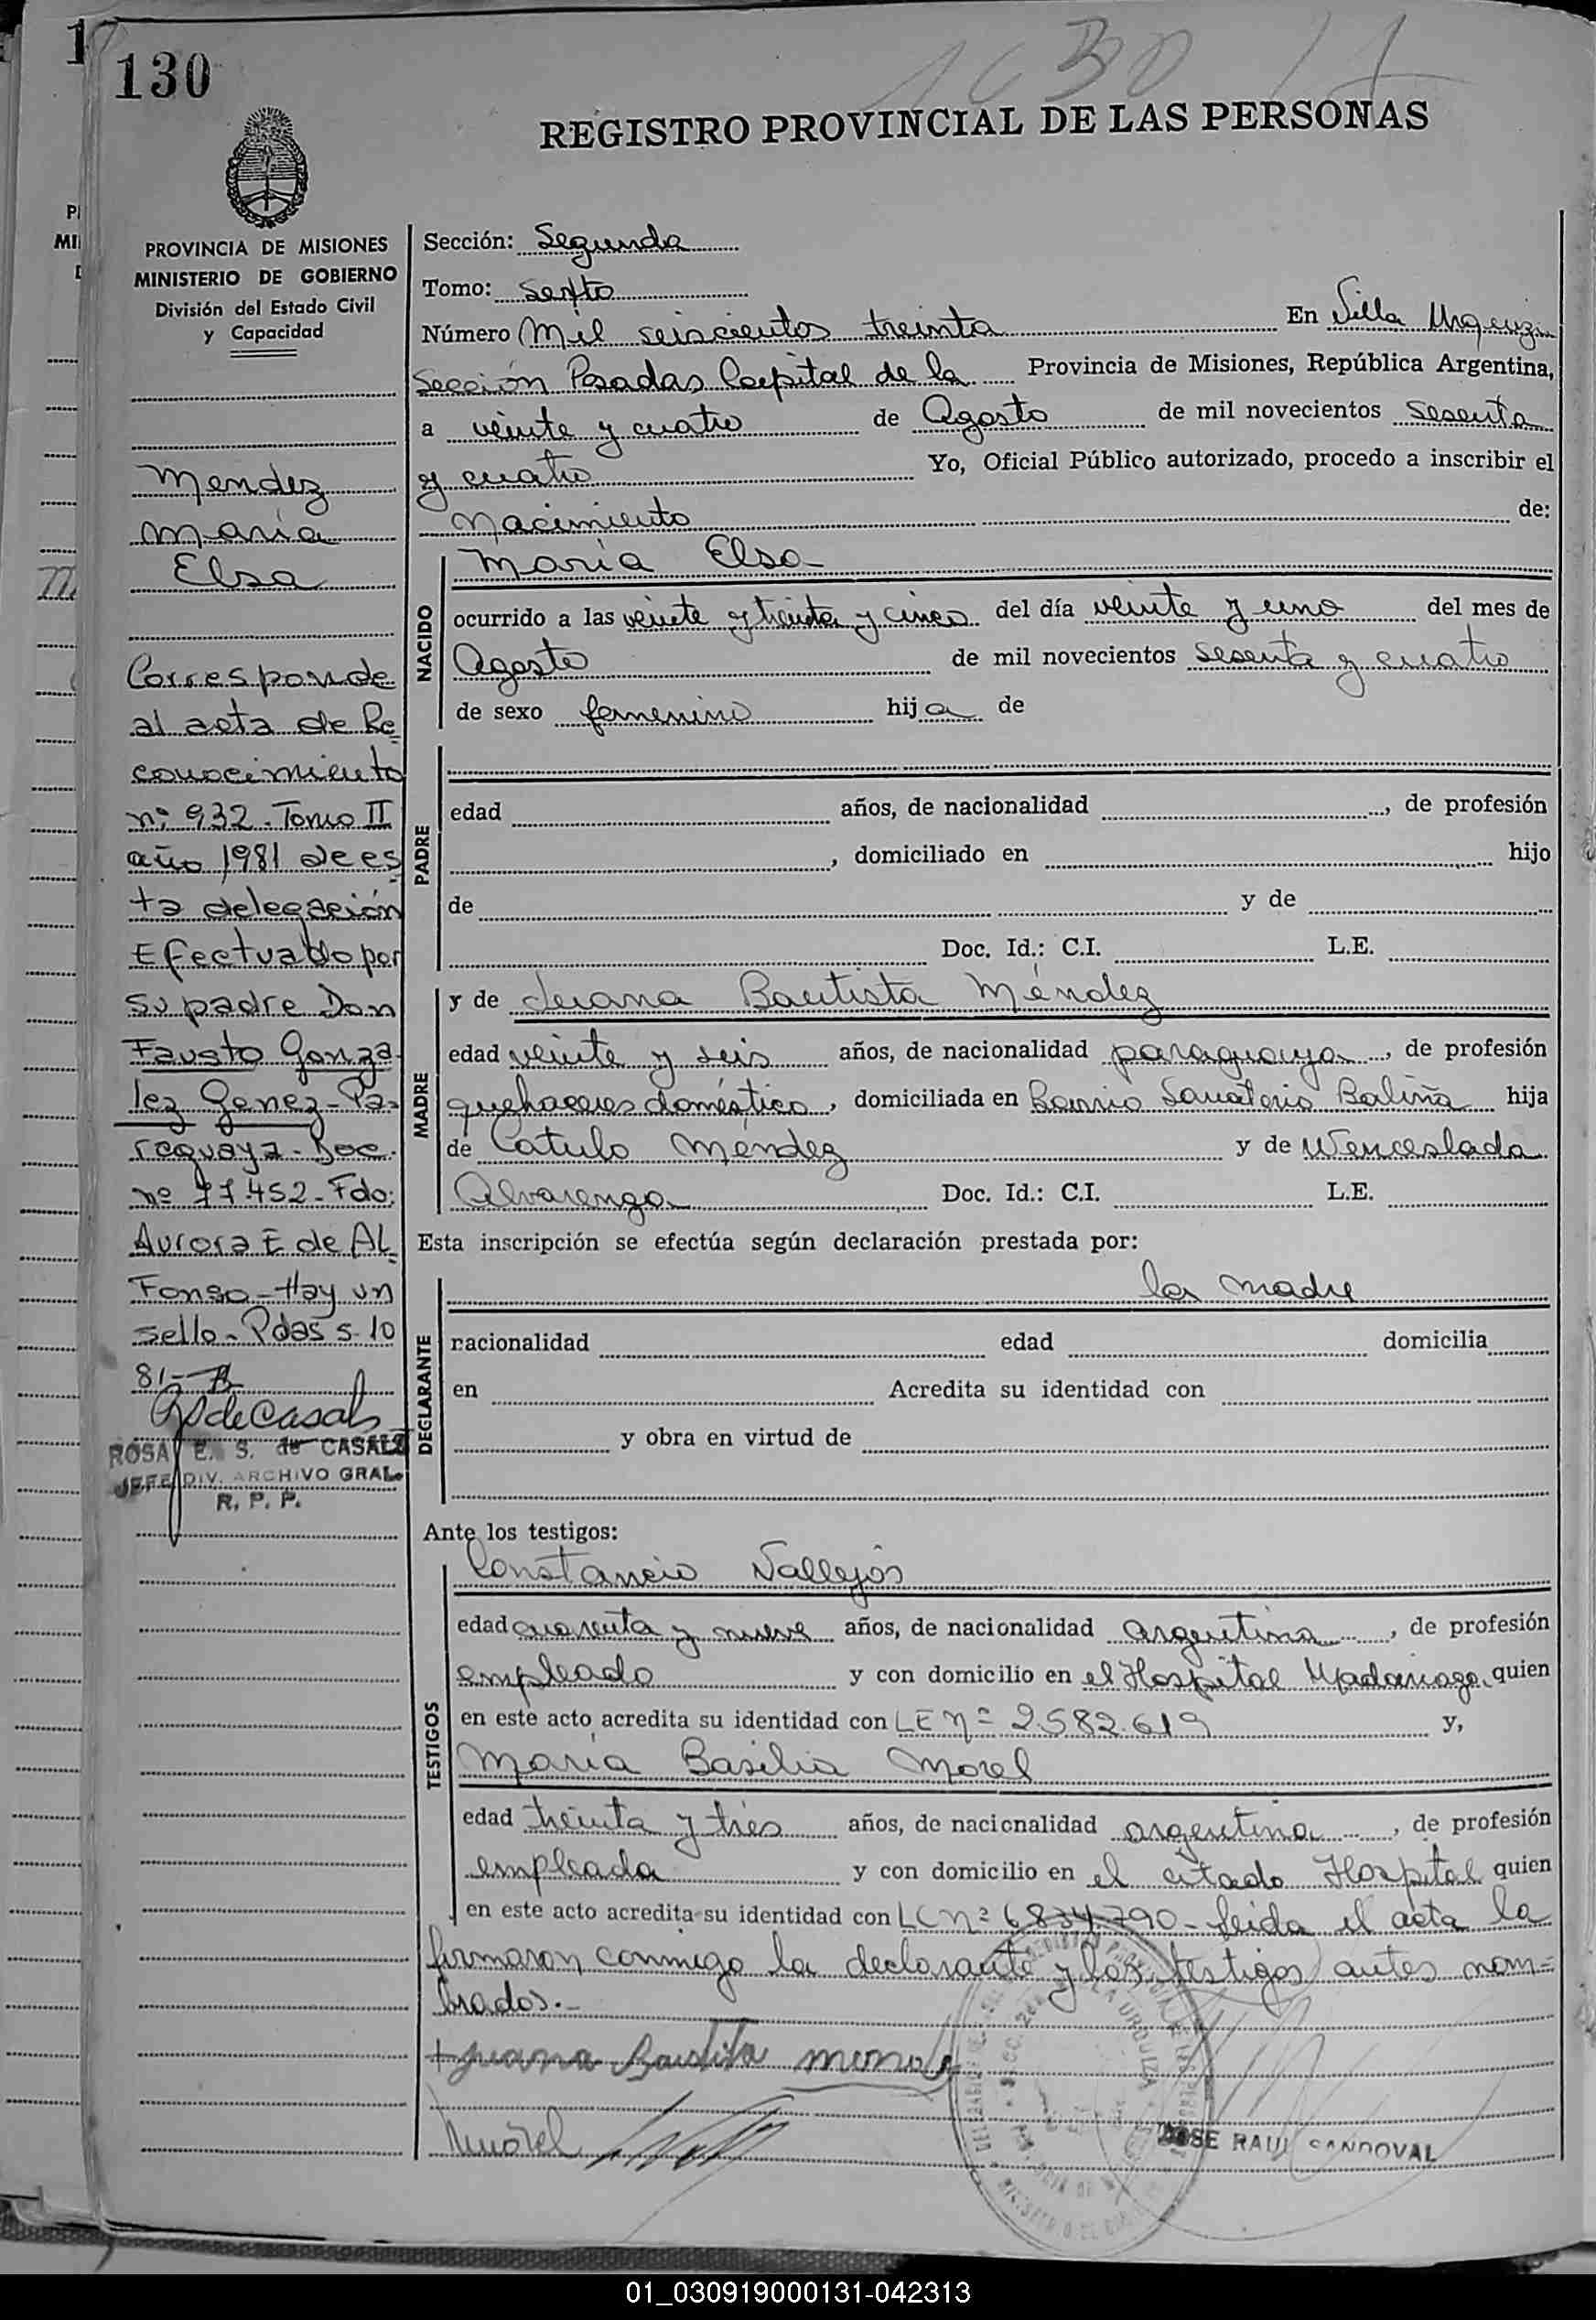 130
1630
REGISTRO PROVINCIAL DE LAS PERSONAS
PROVINCIA DE MISIONES
MINISTERIO DE GOBIERNO
División del Estado Civil
y Capacidad
Mendez
María
Elsa
Corresponde
al acta de Re
conocimiento
nº 932. Tomo II
año 1981 de es
ta delegación
Efectuado por
su padre Don
Fausto Gonza
lez Genez-Pa-
raguaya. Doc.
nº 77.452-Fdo:
Aurora E de AL
Fonso-Hay un
sello-Pdas 5-10
81-
RSdeCasals
ROSA E. S. de CASALS
JEFE DIV. ARCHIVO GRAL.
R. P. P.
Sección: Segunda
Tomo: Sexto
Número Mil seiscientos treinta En Villa Urquiza
Sección Posadas Capital de la Provincia de Misiones, República Argentina,
a veinte y cuatro de Agosto de mil novecientos sesenta
y cuatro Yo, Oficial Público autorizado, procedo a inscribir el
Nacimiento de:
NACIDO
María Elsa
ocurrido a las veinte y treinta y cinco del día veinte y uno del mes de
Agosto de mil novecientos sesenta y cuatro
de sexo femenino hija de
PADRE
edad años, de nacionalidad , de profesión
, domiciliado en hijo
de y de
Doc. Id.: C.I. L.E.
MADRE
y de Juana Bautista Méndez
edad veinte y seis años, de nacionalidad paraguaya , de profesión
quehaceres doméstico , domiciliada en Barrio Sanatorio Baliña hija
de Catulo Méndez y de Wenceslada
Alvarenga Doc. Id.: C.I. L.E.
Esta inscripción se efectúa según declaración prestada por:
DECLARANTE
la madre
nacionalidad edad domicilia
en Acredita su identidad con
y obra en virtud de
Ante los testigos:
TESTIGOS
Constancio Vallejos
edad cuarenta y nueve años, de nacionalidad argentina , de profesión
empleado y con domicilio en el Hospital Madariaga, quien
en este acto acredita su identidad con LE Nº 2.582.619 y,
María Basilia Morel
edad treinta y tres años, de nacionalidad argentina , de profesión
empleada y con domicilio en el citado Hospital quien
en este acto acredita su identidad con LC nº 6834.790- Leida el acta la
firmaron conmigo la declarante y los testigos antes nom=
brados.-
+Juana Bautista
JOSE RAUL SANDOVAL
01_030919000131-042313